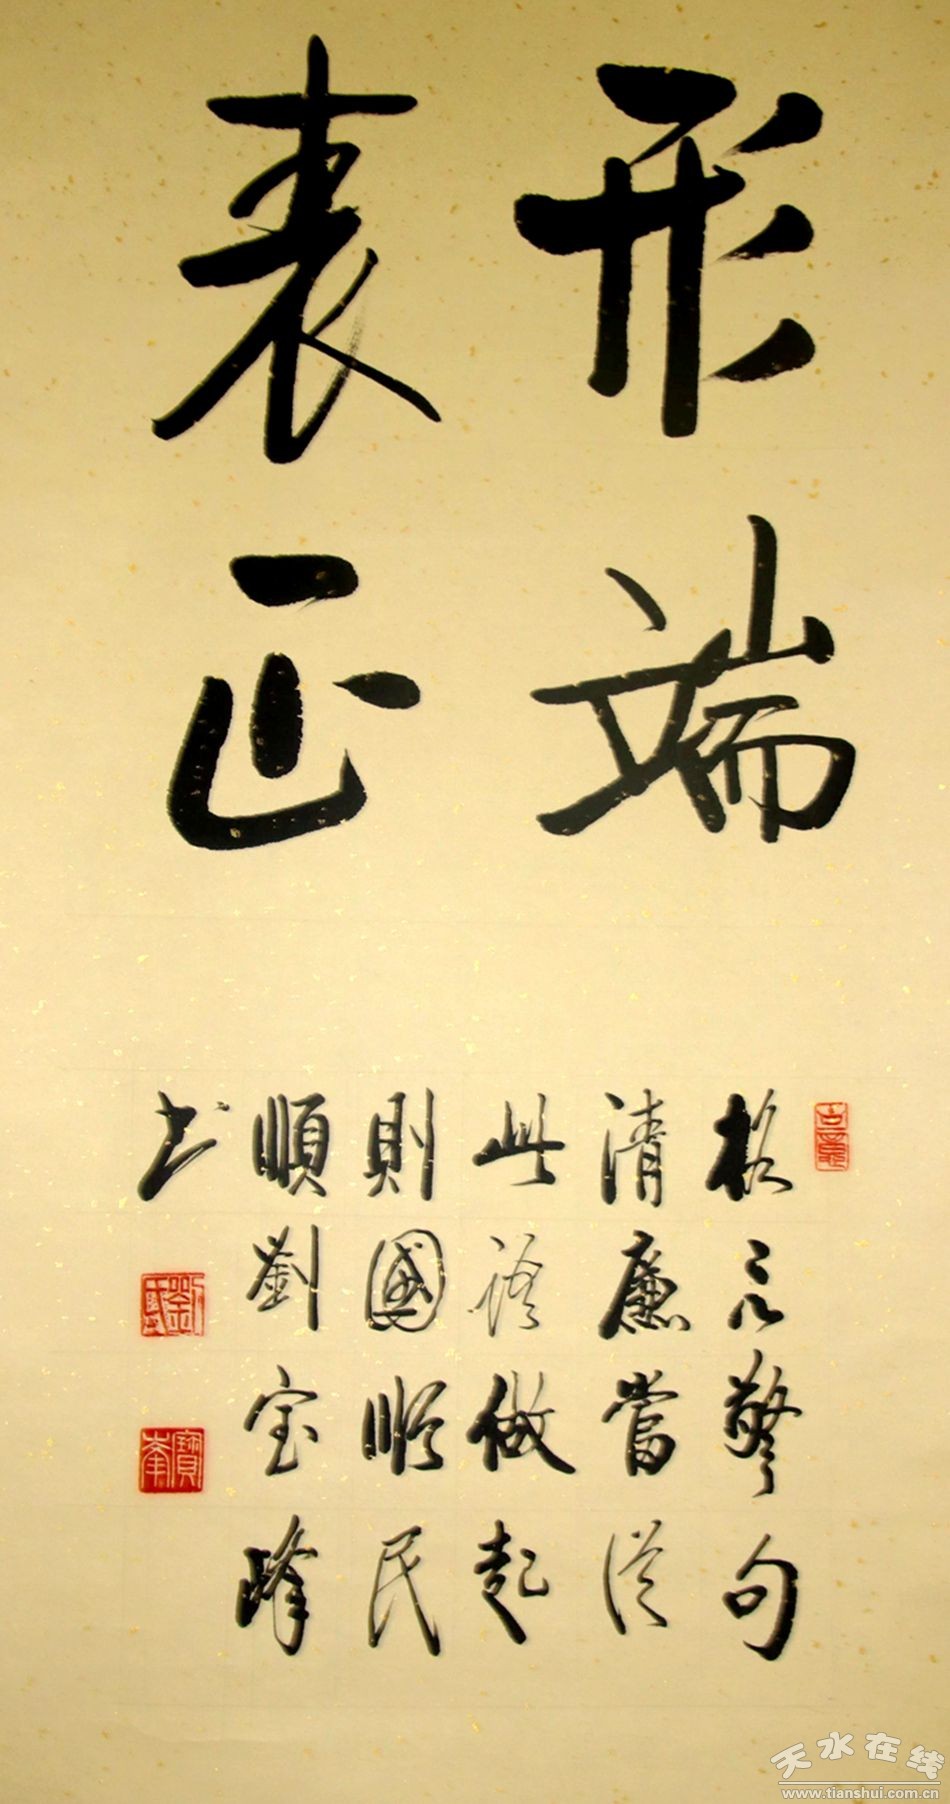 形端
表正
格言警句
清廉當從
此語做起
則國順民
順劉宝峰
书
劉氏
寶峯
天水在线
www.tianshui.com.cn